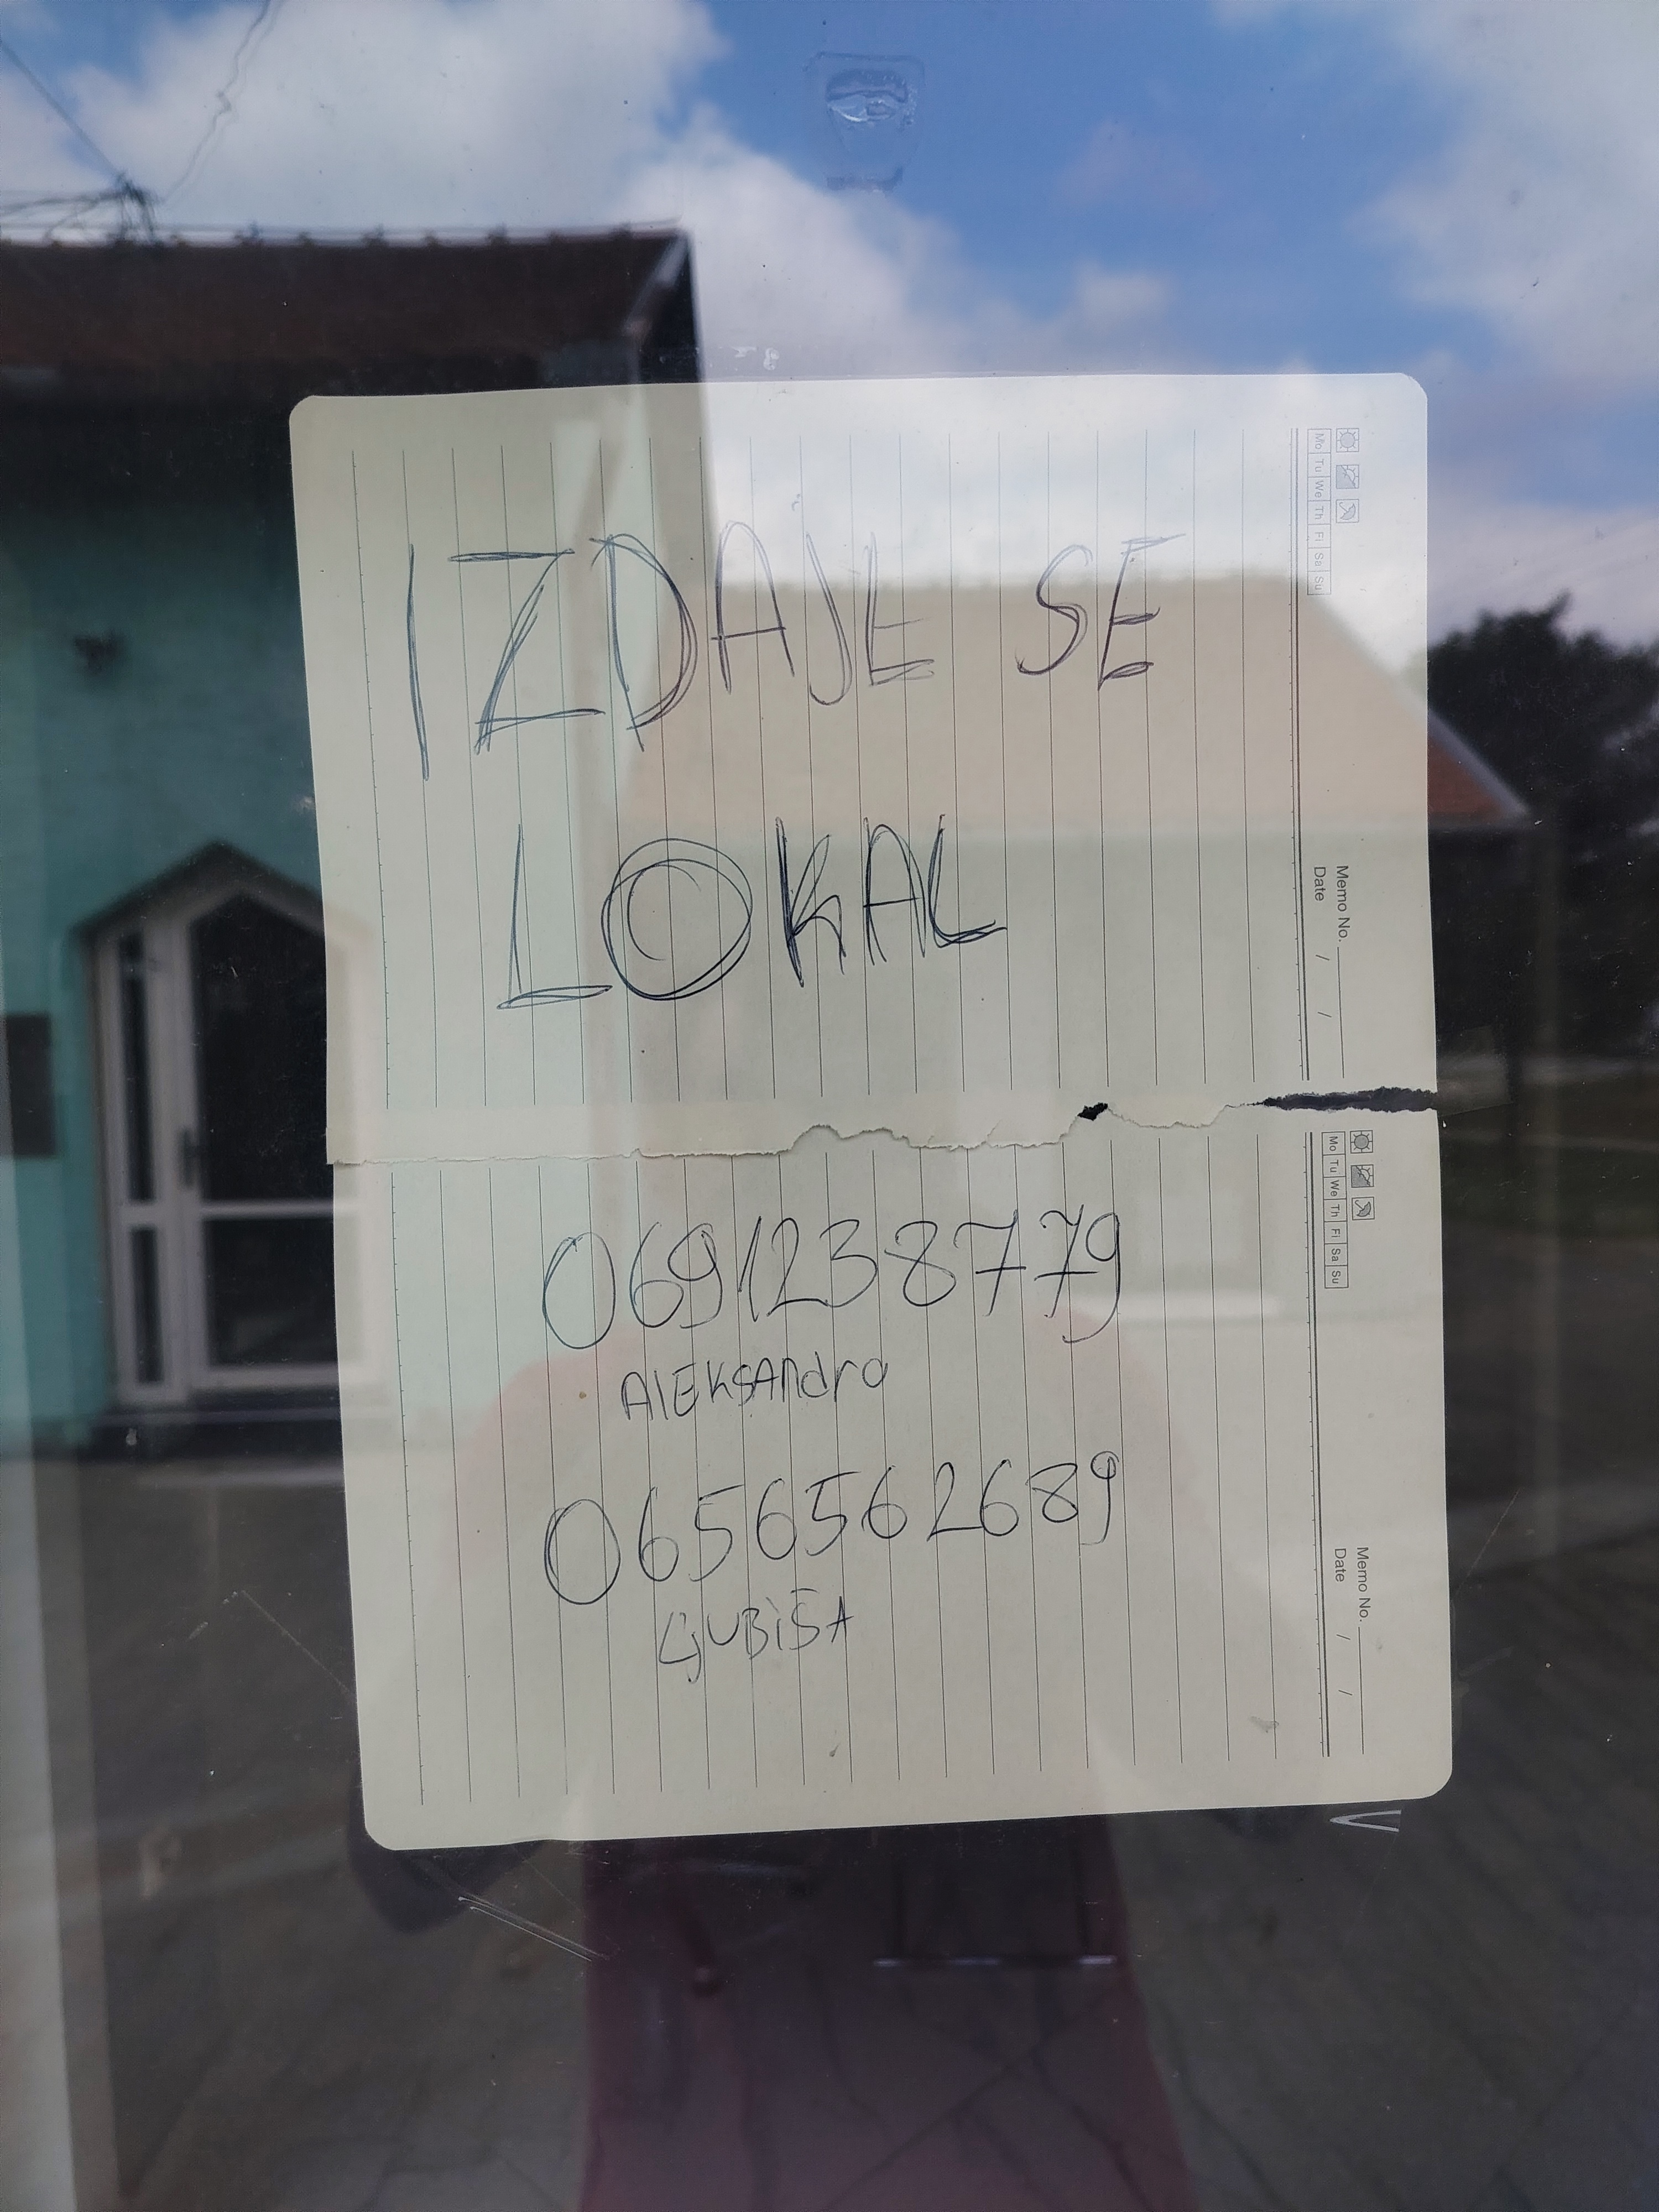 IZDAJE SE
LOKAL
Mo Tu We Th Fi Sa Su
Memo No.
Date / /
0691238779
AlEKSAndra
0656562689
LjUBiŠA
Mo Tu We Th Fi Sa Su
Memo No.
Date / /